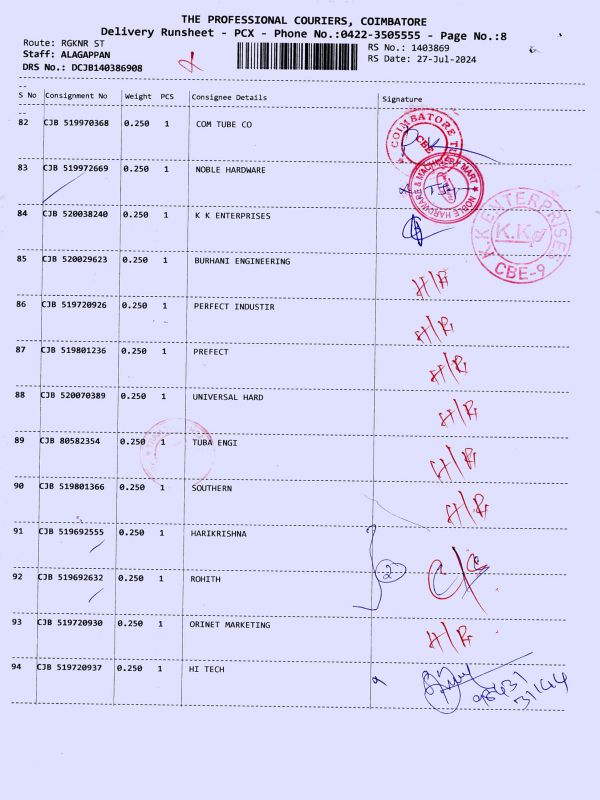 THE PROFESSIONAL COURIERS, COIMBATORE
Delivery Runsheet - PCX - Phone No.:0422-3505555 - Page No.:8
Route: RGKNR ST
RS No.: 1403869
Staff: ALAGAPPAN
RS Date: 27-Jul-2024
DRS No.: DCJB140386908
S No Consignment No Weight PCS Consignee Details Signature
82 CJB 519970368 0.250 1 COM TUBE CO
COIMBATORE
CBE
83 CJB 519972669 0.250 1 NOBLE HARDWARE
NOBLE HARDWARE & MACHINERY MART
84 CJB 520038240 0.250 1 K K ENTERPRISES
K.K ENTERPRISES
K.K
CBE-9
85 CJB 520029623 0.250 1 BURHANI ENGINEERING
86 CJB 519720926 0.250 1 PERFECT INDUSTIR H/R
87 CJB 519801236 0.250 1 PREFECT H/R
88 CJB 520070389 0.250 1 UNIVERSAL HARD H/R
89 CJB 80582354 0.250 1 TUBA ENGI H/R
90 CJB 519801366 0.250 1 SOUTHERN H/R
91 CJB 519692555 0.250 1 HARIKRISHNA
2
92 CJB 519692632 0.250 1 ROHITH
93 CJB 519720930 0.250 1 ORINET MARKETING H/R
94 CJB 519720937 0.250 1 HI TECH
98431
31444